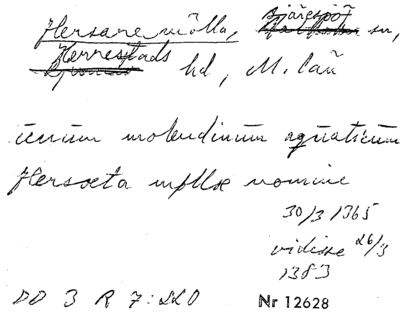 Hersane mölla, Bjäresjö sn,
Herrestads hd, M. län
unum molendinum aquaticum
Hersæta møllæ nomine
30/3 1365
vidisse 26/3
1383
DD 3 R 7:220
Nr 12628